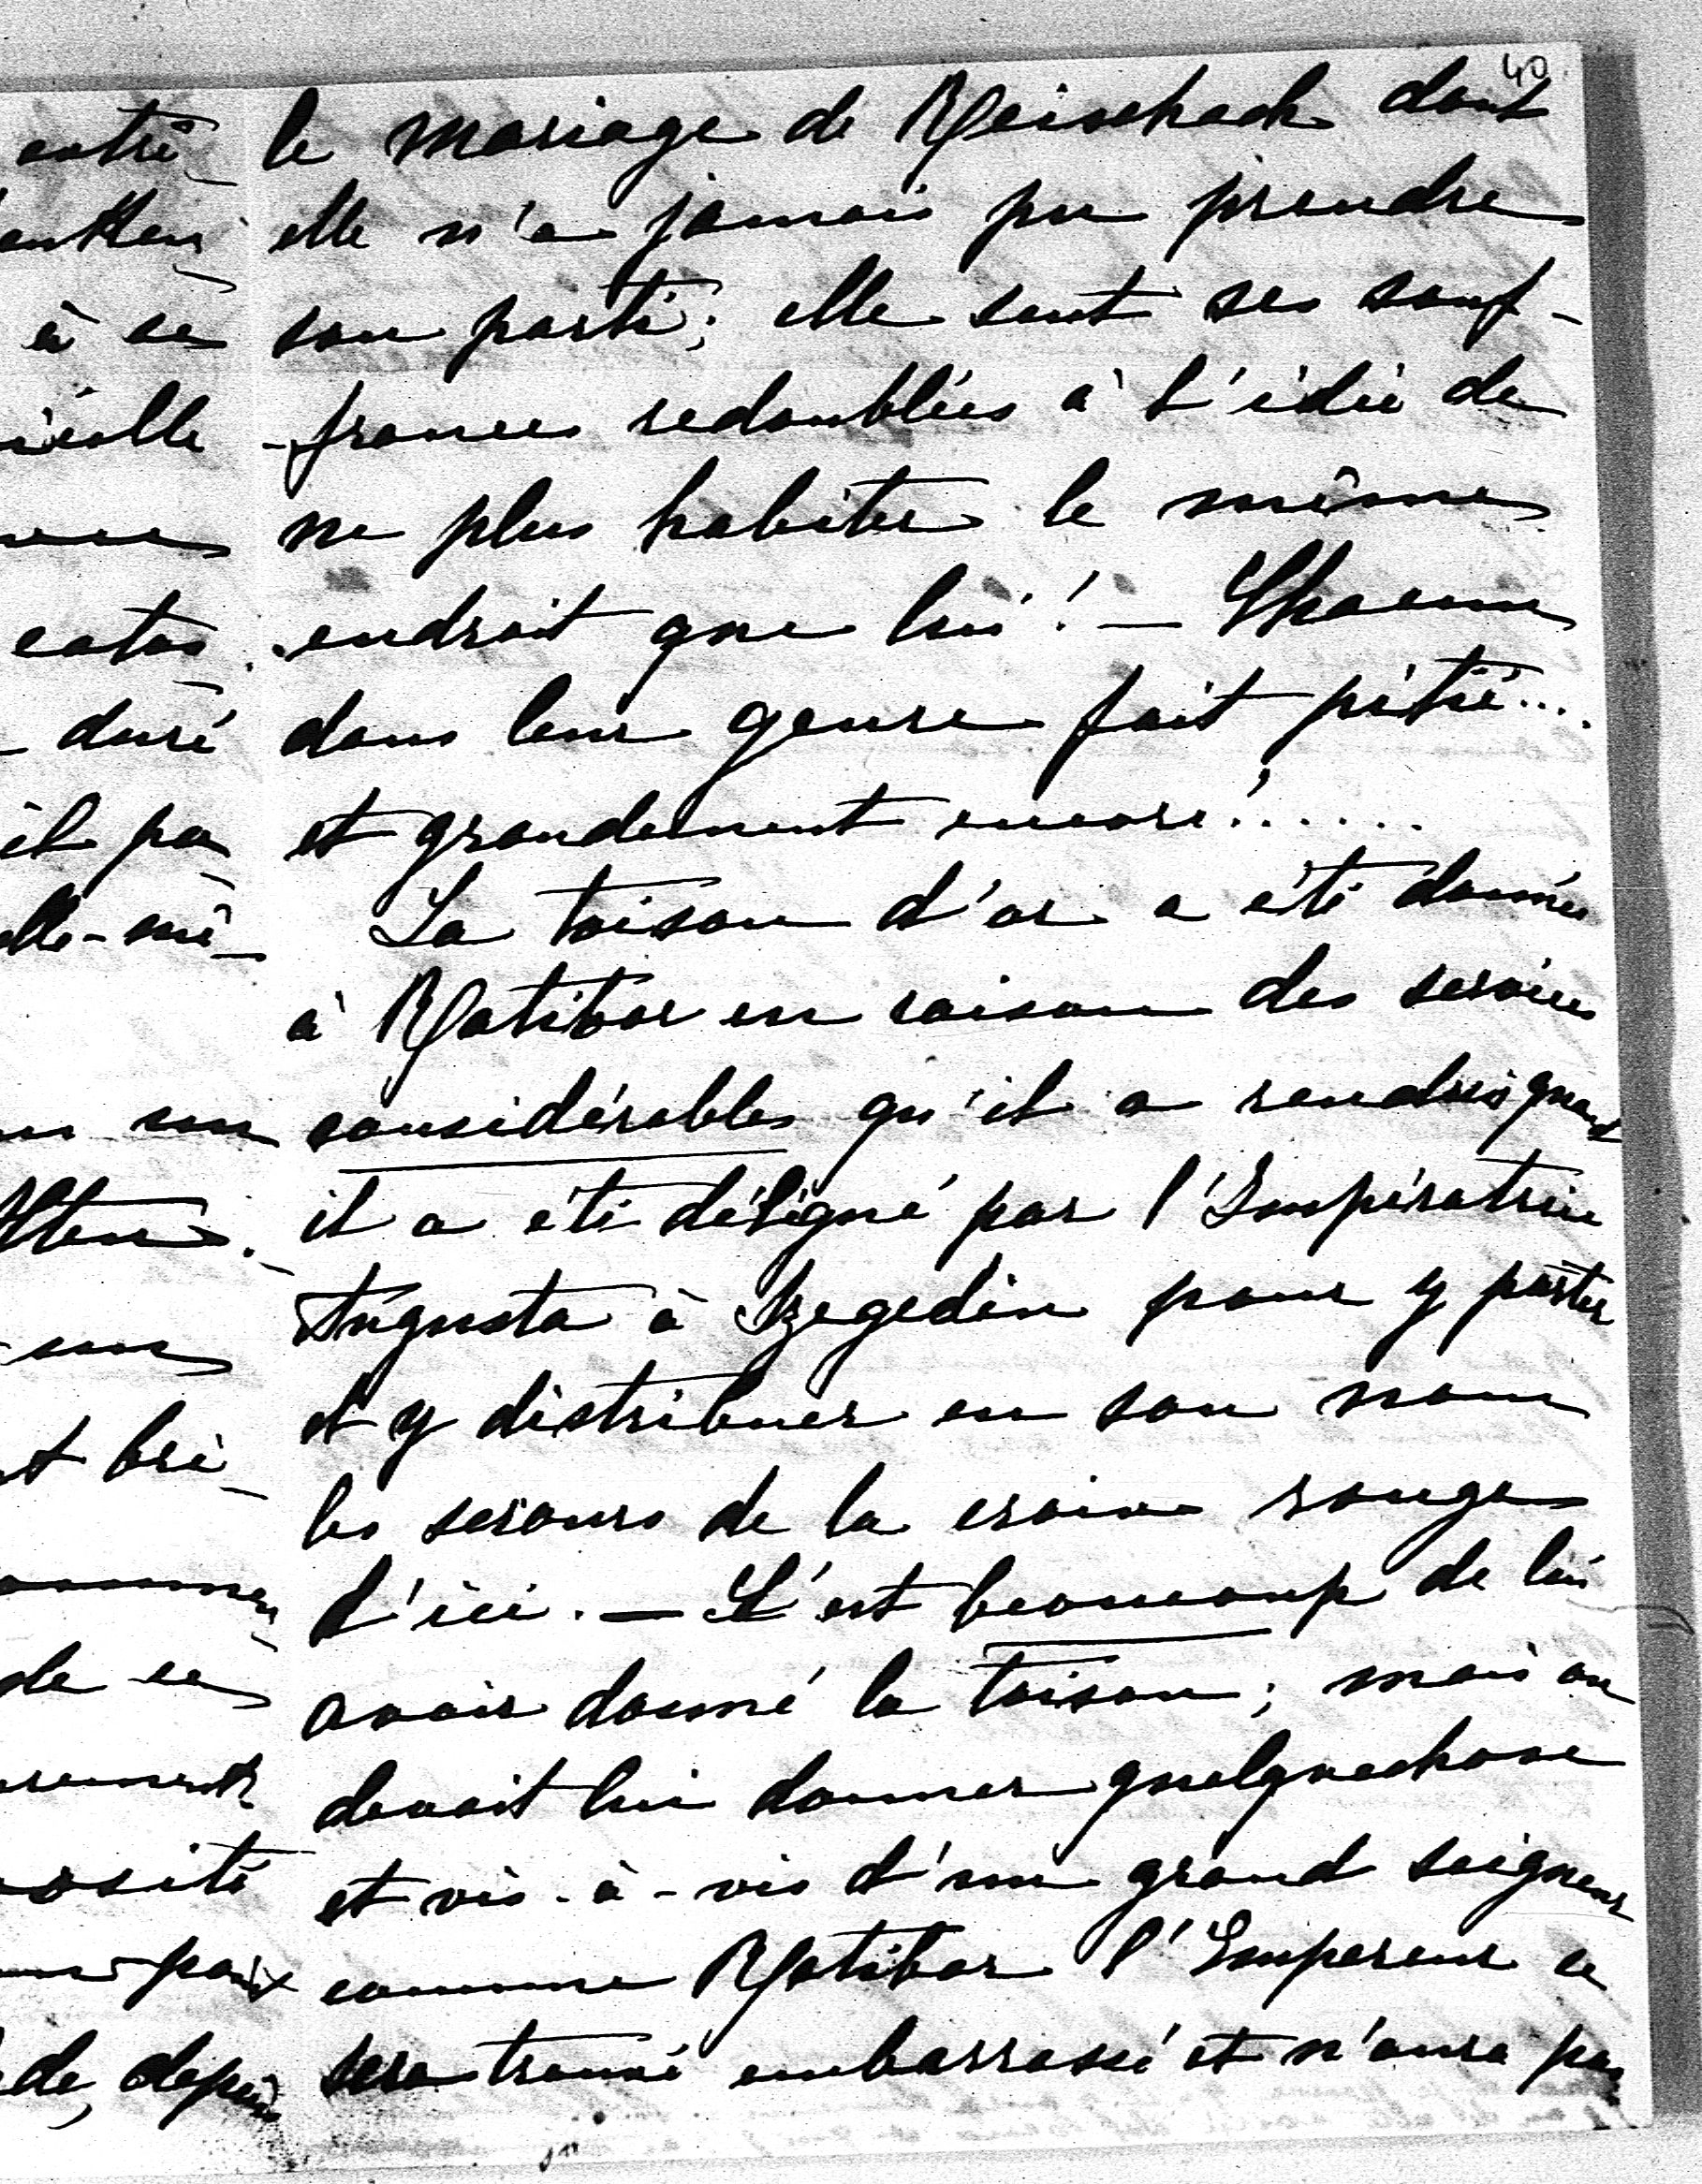 40
le mariage de Reischach dont
elle n'a jamais pu prendre
son parti; elle sent ses souf-
-frances redoublées à l'idée de
ne plus habiter le même
endroit que lui! — Chacun
dans leur genre fait pitié....
et grandement encore!......
La toison d'or a été donnée
à Ratibor en raison des services
considérables qu'il a rendus quand
il a été désigné par l'Impératrice
Augusta à Szegedin pour y porter
et y distribuer en son nom
les secours de la croix rouge
d'ici. — C'est beaucoup de lui
avoir donné la toison; mais on
devait lui donner quelquechose
et vis-à-vis d'un grand seigneur
comme Ratibor l'Empereur se
sera trouvé embarrassé et n'aura pas